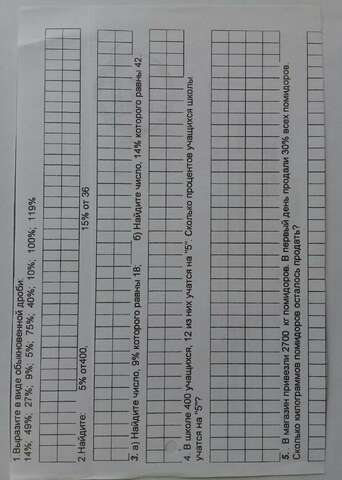 1 Выразите в виде обыкновенной дроби:
14%; 49%; 27%; 9%; 5%; 75%; 40%; 10%; 100%; 119%
2 Найдите: 5% от400, 15% от 36
3. а) Найдите число, 9% которого равны 18; б) Найдите число, 14% которого равны 42.
4. В школе 400 учащихся, 12 из них учатся на "5" Сколько процентов учащихся школы
учатся на "5"?
5. В магазин привезли 2700 кг помидоров. В первый день продали 30% всех помидоров.
Сколько килограммов помидоров осталось продать?